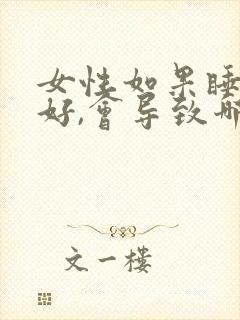 女性如果睡
好,會导致哪
文一楼